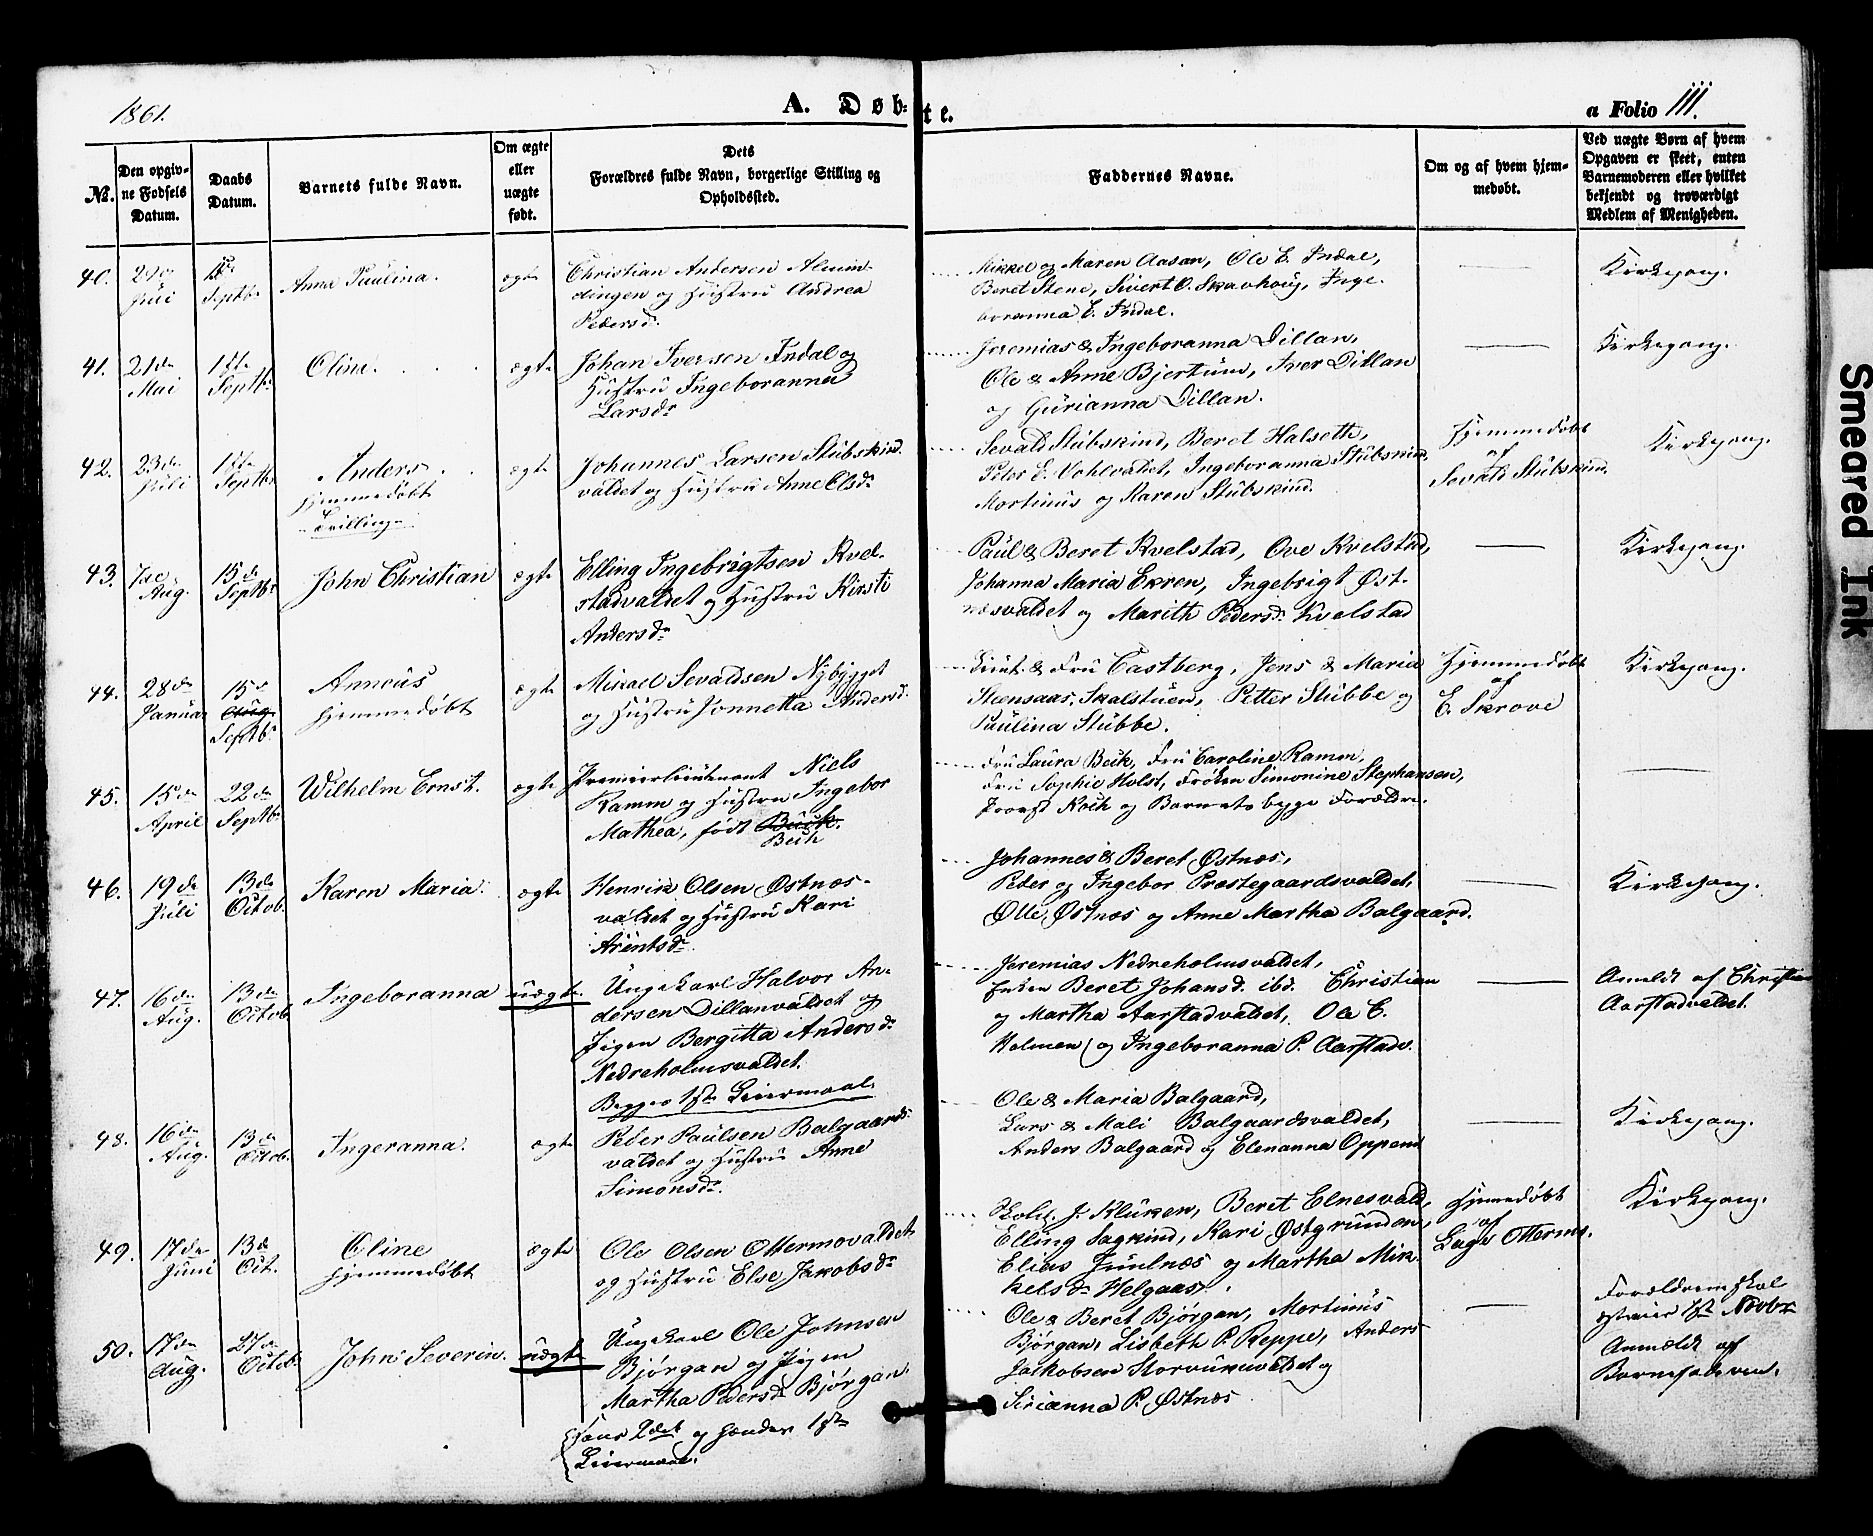 1861.
A. Døbte.
a Folio 111.
No.
Den opgivne Fødsels Datum.
Daabs Datum.
Barnets fulde Navn.
Om ægte eller uægte født.
Dets Forældres fulde Navn, borgerlige Stilling og Opholdssted.
Faddernes Navne.
Om og af hvem hjemmedøbt.
Ved uægte Børn af hvem Opgaven er skeet, enten Barnemoderen eller hvilket bekjendt og troværdigt Medlem af Menigheden.
40.
Septbr
Anne Paulina.
ægte
Christian Andersen Almin-
dingen og Hustru Andrea
Pedersdr
Mikkel og Maren Aasan, Ole E. Indal,
Beret Stene, Sivert O. Skavhoug, Inge-
boranna E. Indal.
Kirkegang.
41.
21de Mai
1ste Septbr
Oline.
ægte
Johan Iversen Indal og
Hustru Ingeboranna
Larsdr
Jeremias & Ingeboranna Dillan,
Ole & Anne Bjertuun, Iver Dillan
og Gurianna Dillan.
Kirkegang.
42.
23de Juli
1ste Septbr
Anders
hjemmedøbt
Tvilling
ægte
Johannes Larsen Stubskind-
valdet og Hustru Anne Elsdr
Sevald Stubskind, Beret Halseth,
Peter E. Vohlvaldet, Ingeboranna Stubskind,
Mortinus og Maren Stubskind.
Hjemmedøbt
af
Sevald Stubskind.
Kirkegang.
43.
7de Aug.
15de Septbr
John Christian
ægte
Elling Ingebrigtsen Kvel-
stadvaldet og Hustru Kirsti
Andersdr
Paul & Beret Kvelstad, Ove Kvelstad,
Johanna Maria Ekren, Ingebrigt Øst-
næsvaldet og Marith Pedersdr Kvelstad
Kirkegang.
44.
28de Januar
15de Aug. Septbr
Anneus
hjemmedøbt
ægte
Mikael Sevaldsen Nybygget
og Hustru Jonnetta Andersdr
Lieut. & Fru Castberg, Jens & Maria
Steensaas, Skalstuen, Petter Stubbe og
Paulina Stubbe.
Hjemmedøbt
af
E. Skrove
Kirkegang.
45.
15de April
22de Septbr
Wilhelm Ernst.
ægte
Premierlieutenant Niels
Ramm og Hustru Ingebor
Mathea, født Buck.
Beck
Fru Laura Beck, Fru Caroline Ramm,
Fru Sophie Holst, Frøken Simonine Stephansen,
Provst Koch og Barnets begge Forældre.
46.
19de Juli
13de Octob.
Karen Maria.
ægte
Henrik Olsen Østnæs-
valdet og Hustru Kari
Arentsdr
Johannes & Beret Østnæs,
Peder og Ingebor Prestegaardsvaldet,
Olle Østnæs og Anne Martha Balgaard.
Kirkegang.
47.
16de Aug.
13de Octob.
Ingeboranna
uægte.
Ungekarl Halvor An-
dersen Dillanvaldet og
Pigen Bergitta Andersdr
Nedreholmsvaldet.
Begges 1ste Leiermaal.
Jeremias Nedreholmsvaldet,
Enken Beret Johansd. ibd. Christian
og Martha Aarstadvaldet, Ole C.
Holmen og Ingeboranna P. Aarstadv.
Anmeldt af Christian
Aarstadvaldet.
48.
16de Aug.
13de Octob.
Ingeranna.
ægte
Peder Paulsen Balgaards-
valdet og Hustru Anne
Simonsdr.
Ole & Maria Balgaard,
Lars & Mali Balgaardsvaldet,
Anders Balgaard og Elenanna Oppem
Kirkegang.
49.
17de Juni
13de Oct.
Oline
hjemmedøbt
ægte
Ole Olsen Ottermovaldet
og Hustru Else Jakobsdr
J. Kluken, Beret Elnesvald,
Elling Sagkind, Kari Østgrunden,
Elias Juulnæs og Martha Mik-
kelsdr Helgaas.
Hjemmedøbt
af
Ottermo.
Kirkegang.
50.
17de Aug.
27de Octob.
John Severin.
uægte
Ungekarl Ole Johnsen
Bjørgan og Pigen
Martha Pedersdr Bjørgan
Hans 2det og hendes 1ste
Leiermaal.
Ole & Beret Bjørgan, Mortinus
Bjørgan, Lisbeth P. Reppe, Anders
Jakobsen Storvukuvaldet og
Sirianna P. Østnæs.
Forældrene skal
1ste Novbr
Anmeldt af
Barnefaderen.
Smeared Ink